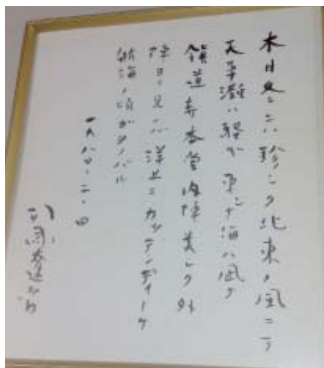 本日ココニハ珍シク北東ノ風ニテ
天草灘ハ騒ギ東シナ海ハ風グ
鎮道寺本堂内陣美シク外
陣ヨリ見レバ洋上ニカッテンディーケ
航海ノ頃ガシノバル
一九八〇・二・四
司馬遼太郎